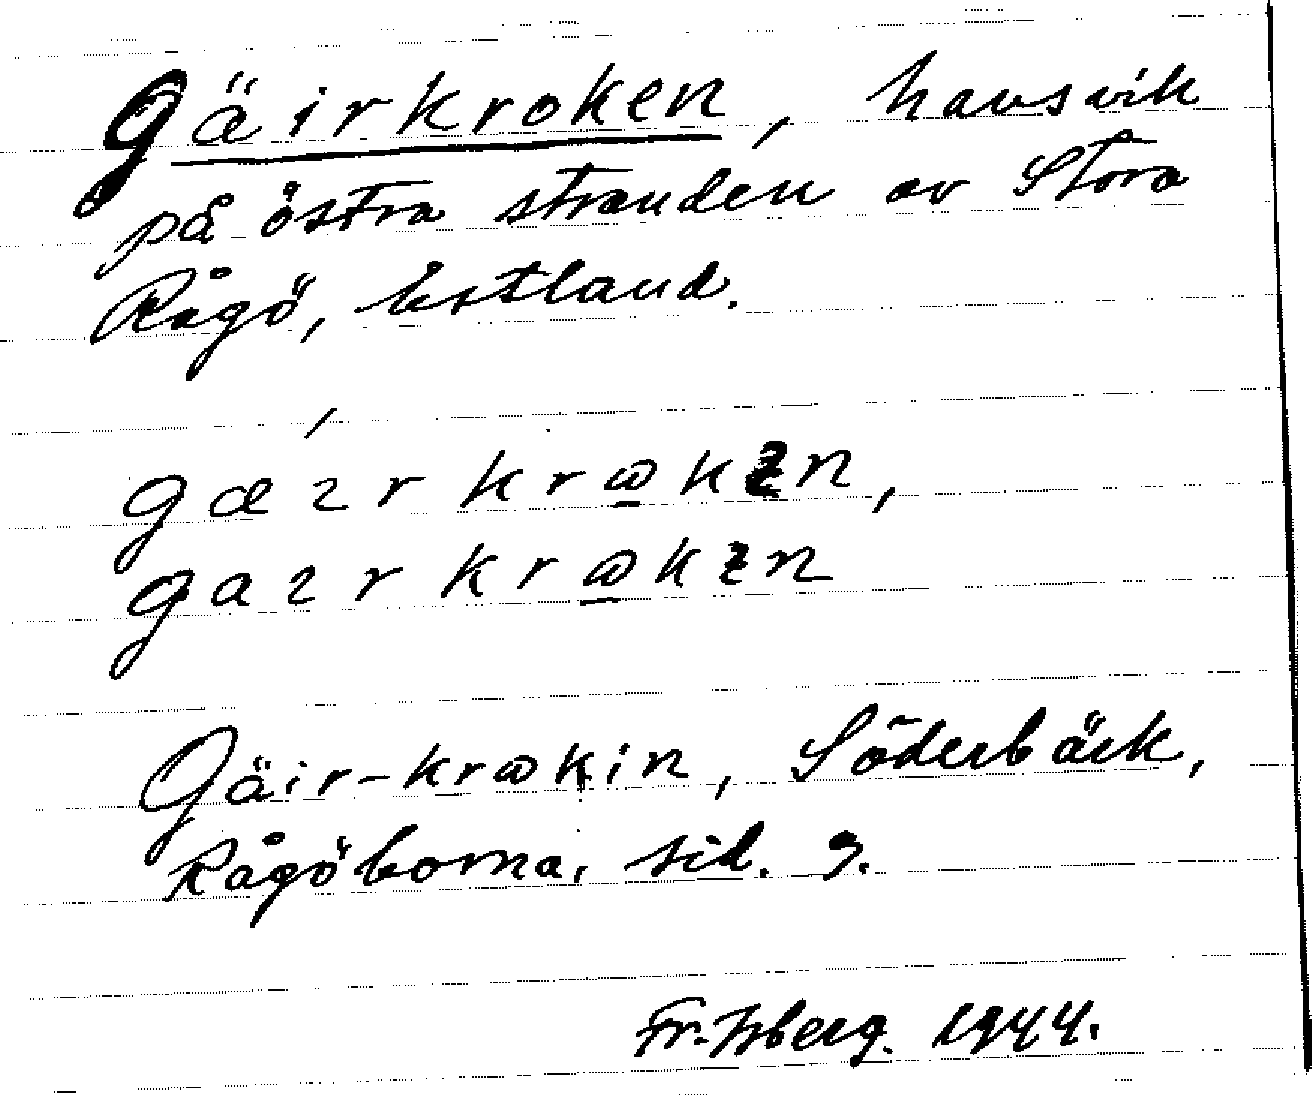 Gäirkroken, havsvik
på östra stranden av Stora
Rågö, Estland.
gæırkrꞷkın,
gaırkrꞷkın
Gäir-krꞷkin, Söderbäck,
Rågöborna, sid. 9.
Fr. Isberg. 1944.